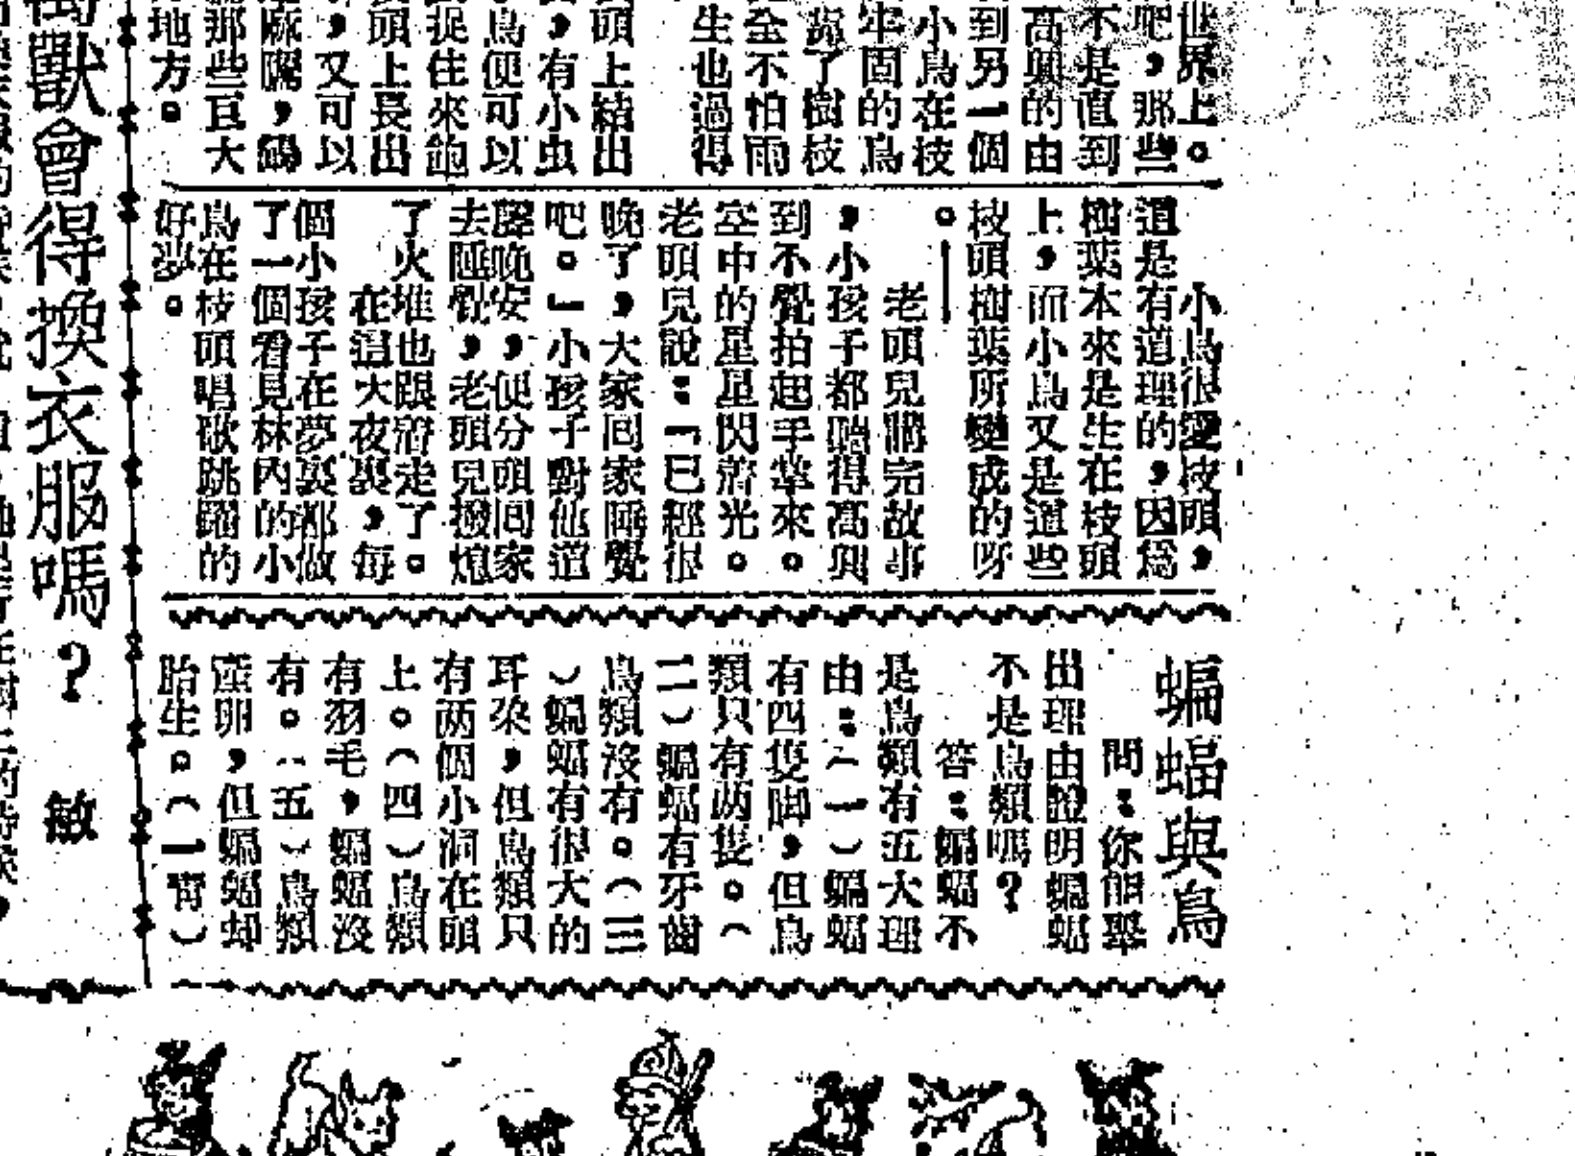 世界上。
吧，那些
不是直到
高興的由
到另一個
小鳥在枝
牢固的鳥
了樹枝
全不怕雨
生也過得
頭上結出
，有小虫
鳥便可以
捉住來飽
頭上長出
，又可以
那些盲大
地方。
小鳥很愛枝頭，
這是有道理的，因爲
樹葉本來是生在枝頭
上，而小鳥又是這些
枝頭樹葉所變成的呀
。——
老頭兒講完故事
，小孩子都聽得高興
到不覺拍起手掌來。
空中的星星閃着光。
老頭兒說：「已經很
晚了，大家回家睡覺
吧。」小孩子對他道
聲晚安，便分頭回家
去睡覺，老頭兒撥熄
了火堆也跟着走了。
在這大夜裏，每
個小孩子在夢裏都做
了一個看見林內的小
鳥在枝頭唱歌跳躍的
好夢。
蝙蝠與鳥
問：你能舉
出理由證明蝙蝠
不是鳥類嗎？
答：蝙蝠不
是鳥類有五大理
由：（一）蝙蝠
有四隻脚，但鳥
類只有两隻。（
二）蝙蝠有牙齒
鳥類沒有。（三
）蝙蝠有很大的
耳朶，但鳥類只
有两個小洞在頭
上。（四）鳥類
有羽毛，蝙蝠沒
有。（五）鳥類
產卵，但蝙蝠却
胎生。（一宵）
獸會得換衣服嗎？　敏